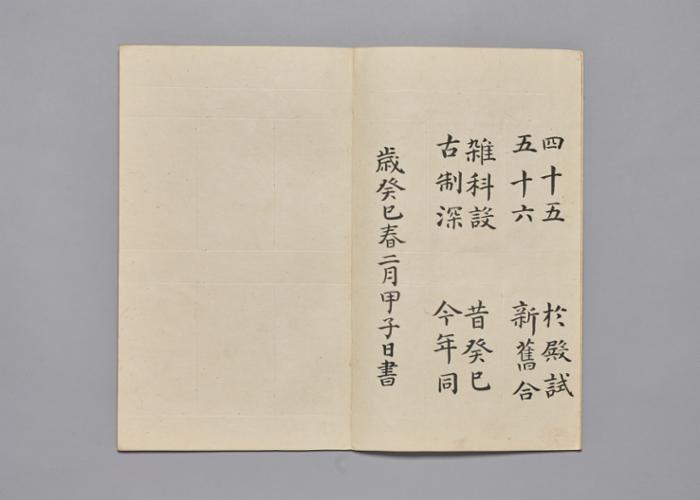 四十五 於殿試
五十六 新舊合
雜科設 昔癸巳
古制深 今年同
歲癸巳春二月甲子日書